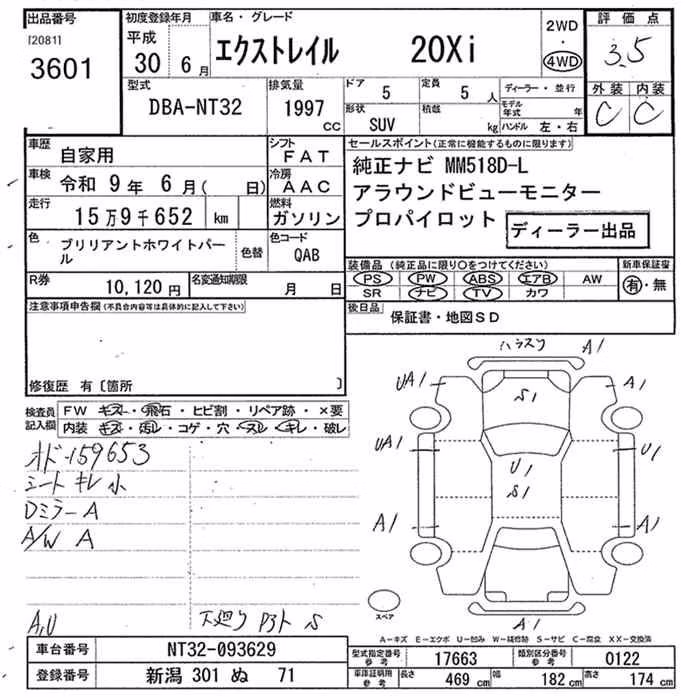 出品番号
[20811]
3601
初度登録年月
平成
30 6月
車名・グレード
エクストレイル 20Xi
2WD
・
4WD
評価点
3.5
外装 内装
C C
型式
DBA-NT32
排気量
1997
cc
ドア
5
定員
5 人
形状
SUV
積載
kg
ディーラー・並行
モデル年式 年
ハンドル 左・右
車歴
自家用
シフト
FAT
車検
令和 9年 6月( 日)
冷房
AAC
走行
15万9千652 km
燃料
ガソリン
色
ブリリアントホワイトパール
色替
色コード
QAB
R券
10,120円
名変通知期限
月 日
セールスポイント(正常に機能するものに限ります)
純正ナビ MM518D-L
アラウンドビューモニター
プロパイロット
ディーラー出品
装備品(純正品に限り○をつけてください)
PS PW ABS エアB AW
SR ナビ TV カワ
新車保証書
有・無
後日品
保証書・地図SD
注意事項申告欄(不具合内容等は具体的に記入して下さい)
修復歴 有〔箇所 〕
検査員記入欄
FW キズ・飛石・ヒビ割・リペア跡・×要
内装 キズ・汚レ・コゲ・穴・スレ・キレ・破レ
オド-159653
シート キレ 小
Dミラー A
A/W A
A,U
下廻り P3ト S
A1
UA1
S1
A1
UA1
U1
U1
S1
A1
A1
スペア
A1
A-キズ E-エクボ U-凹み W-補修跡 S-サビ C-腐食 XX-交換済
車台番号
NT32-093629
登録番号
新潟 301 ぬ 71
型式指定番号
参考
17663
類別区分番号
参考
0122
車庫証明用
参考
長さ
469 cm
幅
182 cm
高さ
174 cm